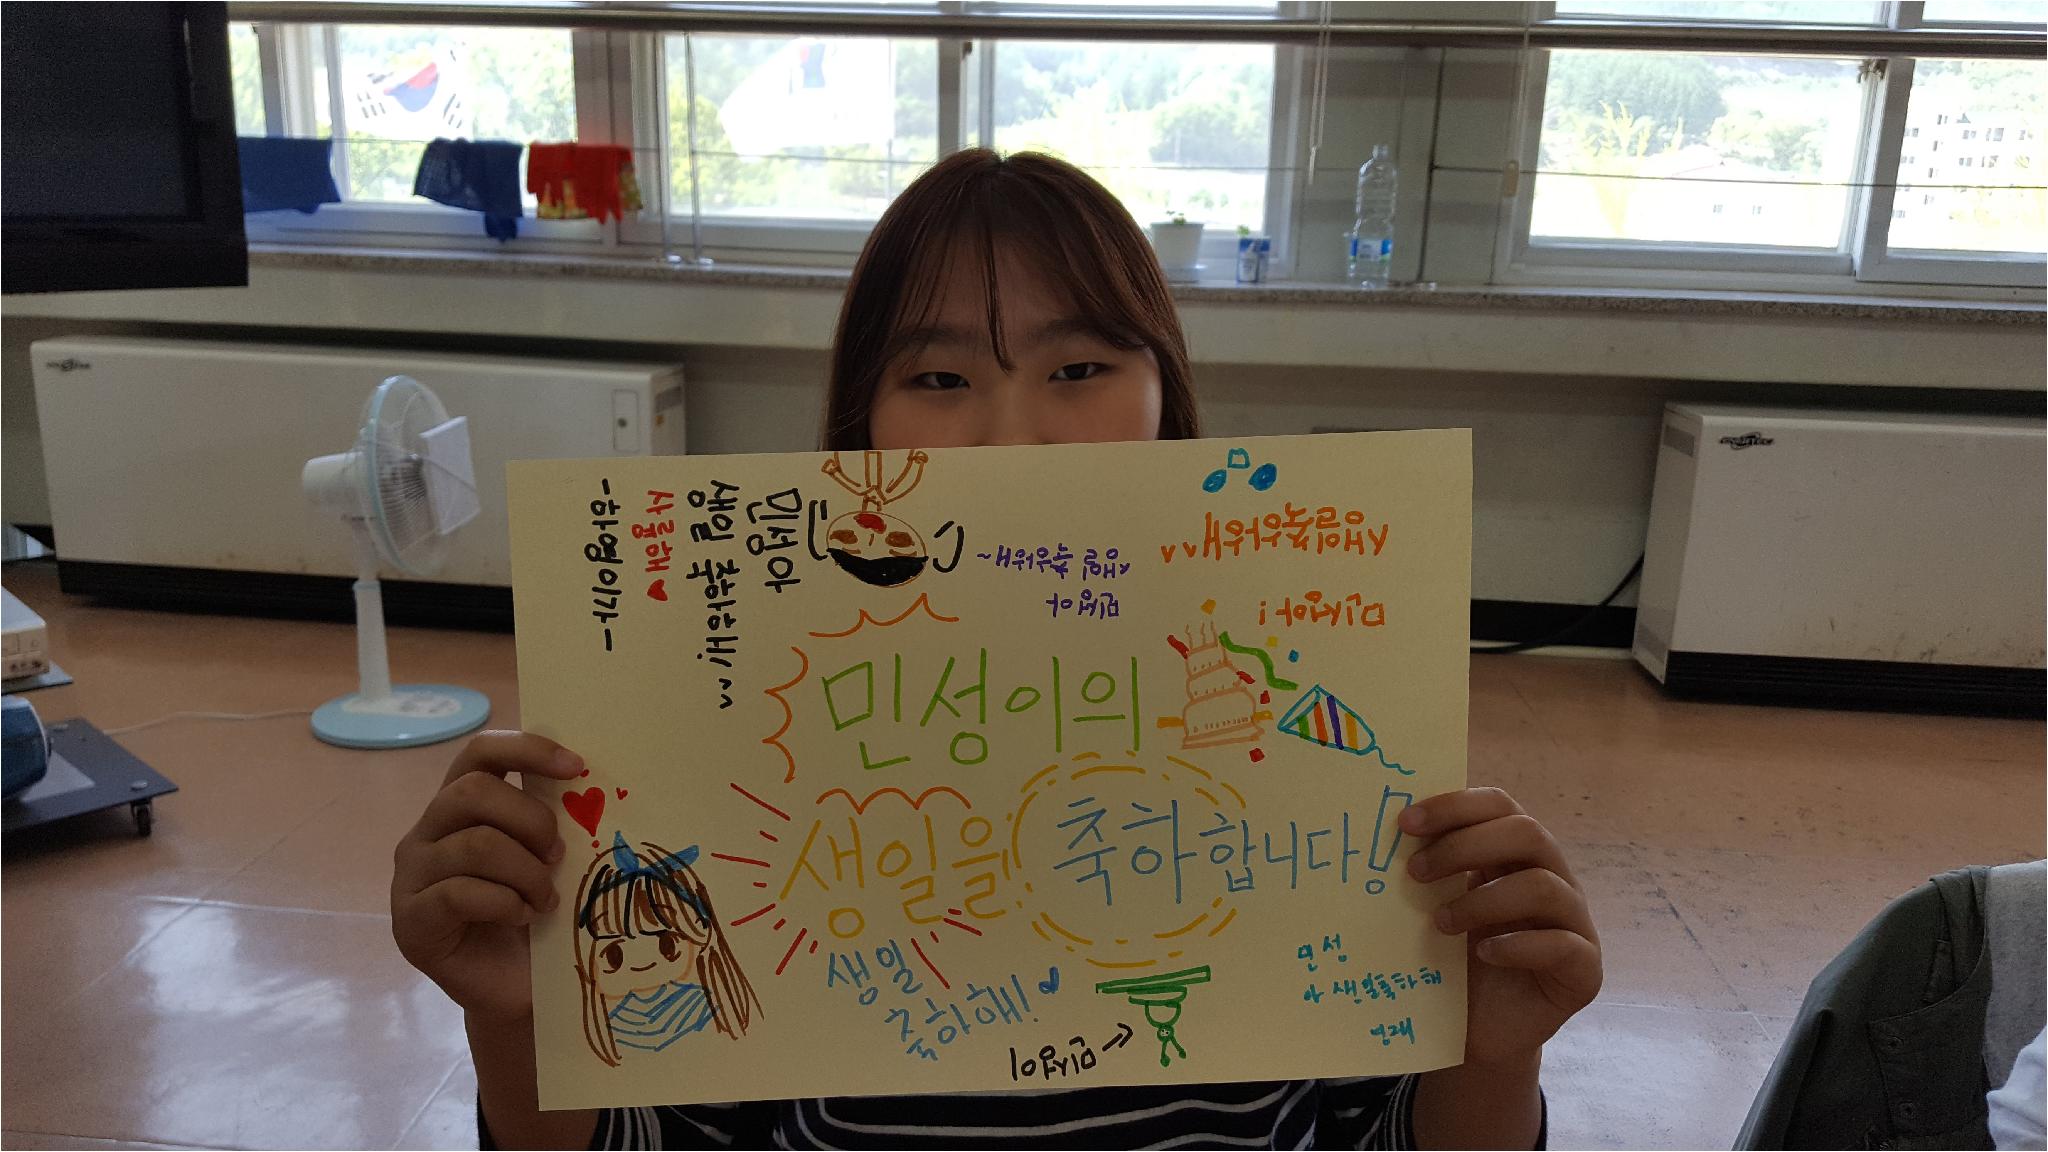 민성이의
생일을
축하합니다!
민성아
생일 축하해!
사랑해
-하영이가-
생일 축하해~
민성아
생일 축하해
민성아!
생일
축하해!
민성이
민성
아 생일축하해